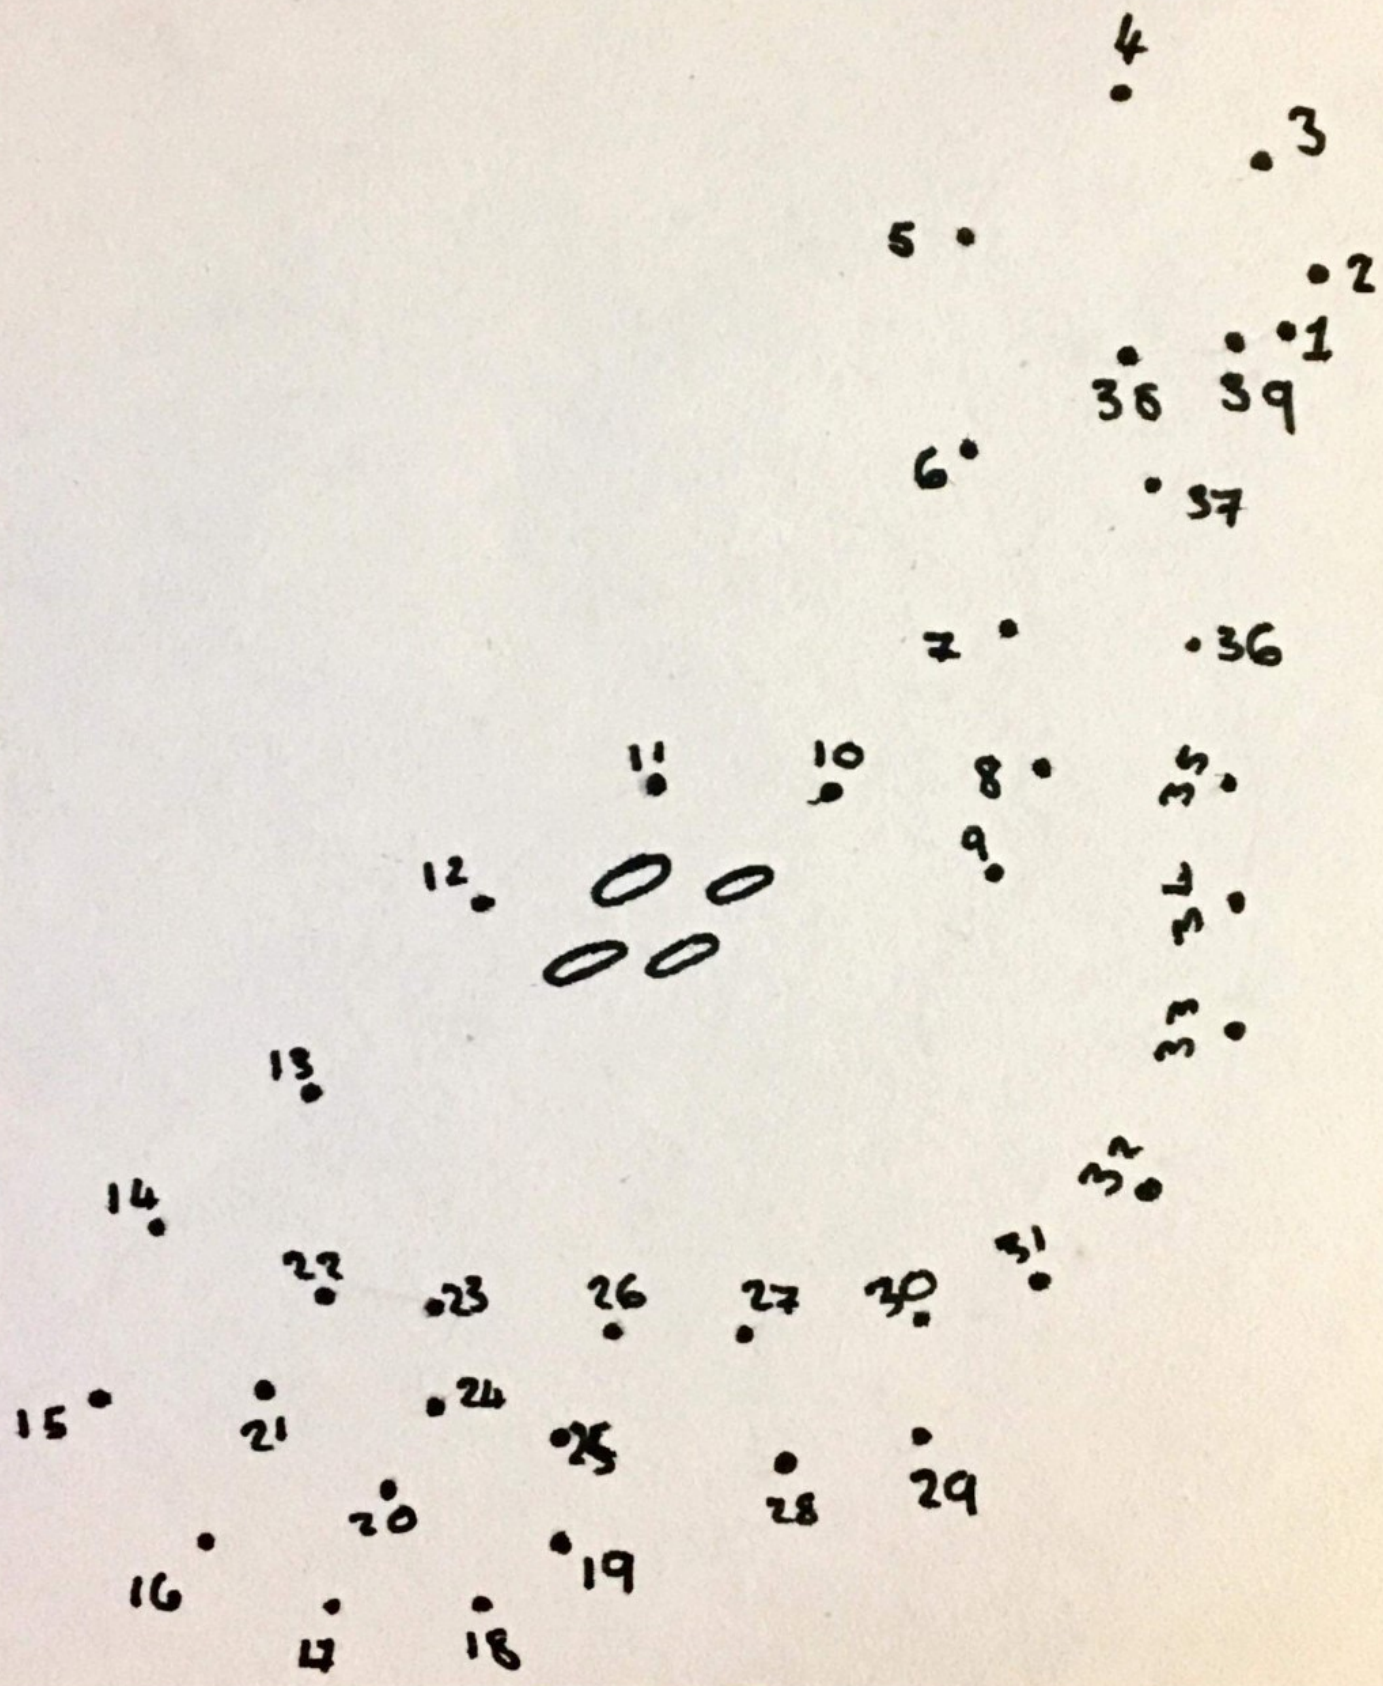 4
3
5
2
1
38 39
6
37
7
36
11
10
8
35
9
12
34
33
13
32
14
31
22
23
26
27
30
15
21
24
25
29
28
20
19
16
17
18